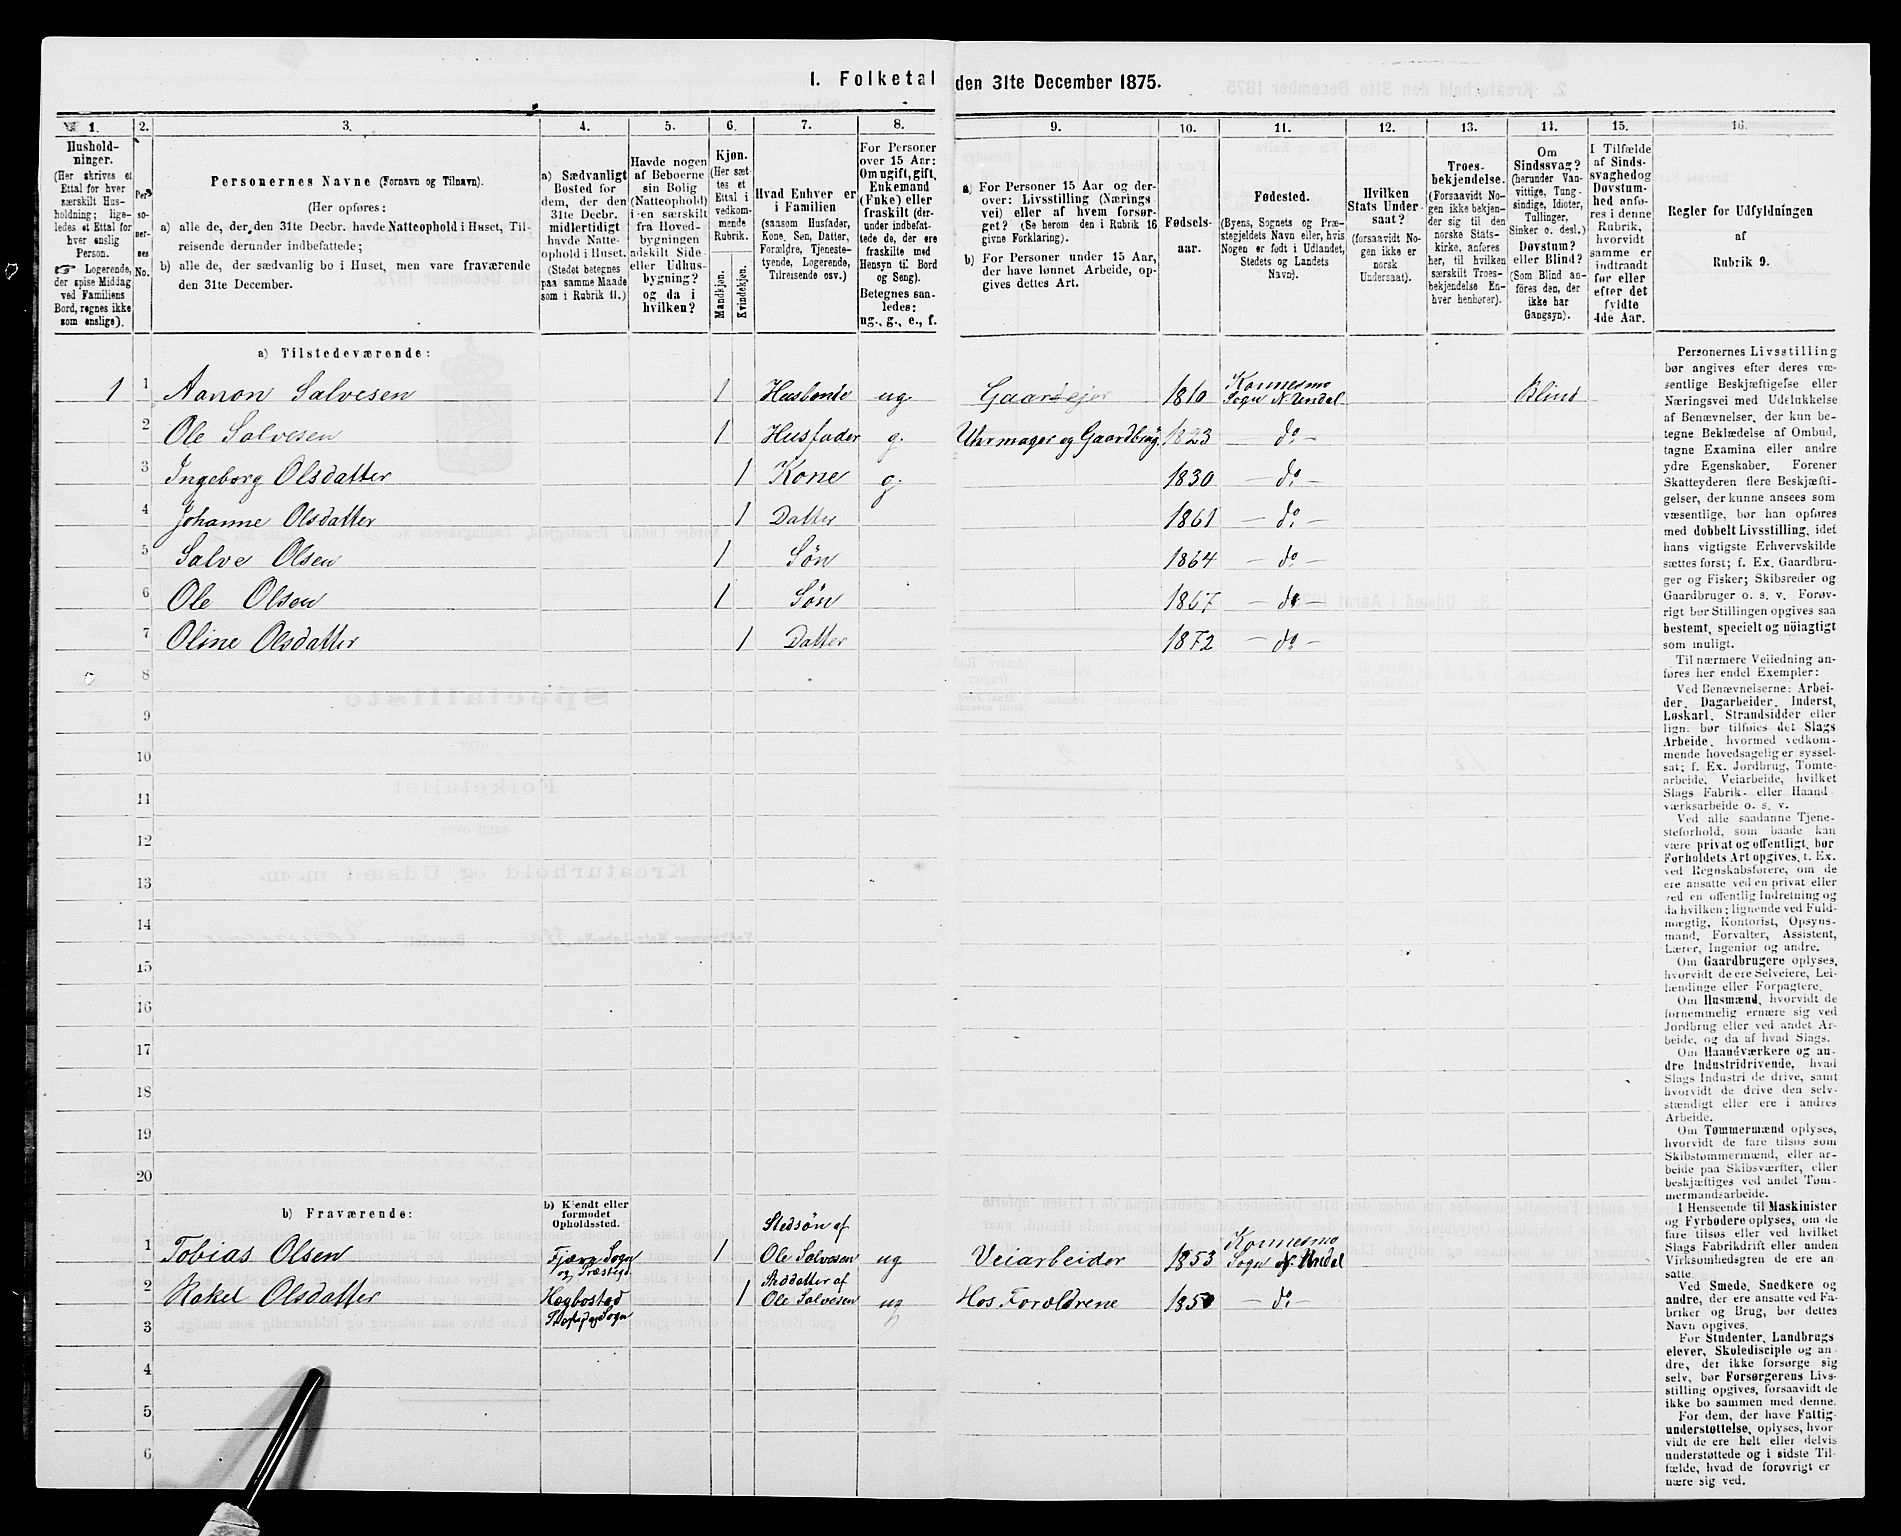 1. Folketal den 31te December 1875.
1. 2. 3. 4. 5. 6. 7. 8. 9. 10. 11. 12. 13. 14. 15. 16.
Hushold-
ninger.
(Her skrives et
Ettal for hver
særskilt Hus-
holdning; lige-
ledes et Ettal for
hver enslig
Person.
☞ Logerende,
der spise Middag
ved Familiens
Bord, regnes ikke
som enslige).
Per-
so-
ner-
nes
No.
Personernes Navne (Fornavn og Tilnavn).
(Her opføres:
a) alle de, der den 31te Decbr. havde Natteophold i Huset, Til-
reisende derunder indbefattede;
b) alle de, der sædvanlig bo i Huset, men vare fraværende
den 31te December.
a) Sædvanligt
Bosted for
dem, der den
31te Decbr.
midlertidigt
havde Natte-
ophold i Huset.
(Stedet betegnes
paa samme Maade
som i Rubrik 11.)
Havde nogen
af Beboerne
sin Bolig
(Natteophold)
i en særskilt
fra Hoved-
bygningen
adskilt Side-
eller Udhus-
bygning?
og da i
hvilken?
Kjøn.
(Her sæt-
tes et
Ettal i
vedkom-
mende
Rubrik.
Mandkjøn.
Kvindekjøn.
Hvad Enhver er
i Familien
(saasom Husfader,
Kone, Søn, Datter,
Forældre, Tjeneste-
tyende, Logerende,
Tilreisende osv.)
For Personer
over 15 Aar:
Om ugift, gift,
Enkemand
(Enke) eller
fraskilt (der-
under indbefat-
tede de, der ere
fraskilte med
Hensyn til Bord
og Seng).
Betegnes saa-
ledes:
ug., g., e., f.
a) For Personer 15 Aar og der-
over: Livsstilling (Nærings-
vei) eller af hvem forsør-
get? (Se herom den i Rubrik 16
givne Forklaring).
b) For Personer under 15 Aar,
der have lønnet Arbeide, op-
gives dettes Art.
Fødsels-
aar.
Fødested.
(Byens, Sognets og Præ-
stegjeldets Navn eller, hvis
Nogen er født i Udlandet,
Stedets og Landets
Navn).
Hvilken
Stats Under-
saat?
(forsaavidt No-
gen ikke er
norsk
Undersaat).
Troes-
bekjendelse.
(Forsaavidt No-
gen ikke bekjen-
der sig til den
norske Stats-
kirke, anføres
her, til hvilken
særskilt Troes-
bekjendelse En-
hver henhører).
Om
Sindssvag?
(herunder Van-
vittige, Tung-
sindige, Idioter,
Tullinger,
Sinker o. desl.)
Døvstum?
eller Blind?
(Som Blind an-
føres den, der
ikke har
Gangsyn).
I Tilfælde
af Sinds-
svaghed og
Døvstum-
hed anfø-
res i denne
Rubrik,
hvorvidt
samme er
indtraadt
før eller
efter det
fyldte
4de Aar.
Regler for Udfyldningen
af
Rubrik 9.
a) Tilstedeværende:
1 1 Aanon Salvesen 1 Husbonde ug. Gaardejer 1810 Konnesmo Sogn N. Undal Blind
2 Ole Salvesen 1 Husfader g. Uhrmager og Gaardbrug. 1823 — do —
3 Ingeborg Olsdatter 1 Kone g. 1830 — do —
4 Johanne Olsdatter 1 Datter 1861 — do —
5 Salve Olsen 1 Søn 1864 — do —
6 Ole Olsen 1 Søn 1867 — do —
7 Oline Olsdatter 1 Datter 1872 — do —
8
9
10
11
12
13
14
15
16
17
18
19
20
b) Fraværende:
b) Kjendt eller
formodet
Opholdssted.
1 Tobias Olsen Sogn og Præstegj 1 Stedsøn af Ole Salvesen ug Veiarbeider 1853 Konnesmo Sogn N. Undal
2 Rakel Olsdatter Hægbostad Sogn 1 Steddatter af Ole Salvesen ug Hos Forældrene — do —
3
4
5
6
Personernes Livsstilling
bør angives efter deres væ-
sentlige Beskjæftigelse eller
Næringsvei med Udelukkelse
af Benævnelser, der kun be-
tegne Beklædelse af Ombud,
tagne Examina eller andre
ydre Egenskaber. Forener
Skatteyderen flere Beskjæfti-
gelser, der kunne ansees som
væsentlige, bør han opføres
med dobbelt Livsstilling, idet
hans vigtigste Erhvervskilde
sættes først; f. Ex. Gaardbru-
ger og Fisker; Skibsreder og
Gaardbruger o. s. v. Forøv-
rigt bør Stillingen opgives saa
bestemt, specielt og nöiagtigt
som muligt.
Til nærmere Veiledning an-
føres her endel Exempler:
Ved Benævnelserne: Arbei-
der, Dagarbeider, Inderst,
Løskarl, Strandsidder eller
lign. bør tilføies det Slags
Arbeide, hvormed vedkom-
mende hovedsagelig er syssel-
sat; f. Ex. Jordbrug, Tomte-
arbeide, Veiarbeide, hvilket
Slags Fabrik- eller Haand
værksarbeide o. s. v.
Ved alle saadanne Tjene-
steforhold, som baade kan
være privat og offentligt, bør
Forholdets Art opgives, t. Ex.
ved Regnskabsførere, om de
ere ansatte ved en privat eller
ved en offentlig Indretning og
da hvilken; lignende ved Fuld-
mægtig, Kontorist, Opsyns-
mand, Forvalter, Assistent,
Lærer, Ingeniør og andre.
Om Gaardbrugere oplyses,
hvorvidt de ere Selveiere, Lei-
lændinge eller Forpagtere.
Om Husmænd, hvorvidt de
fornemmelig ernære sig ved
Jordbrug eller ved andet Ar-
beide, og da af hvad Slags.
Om Haandværkere og an-
dre Industridrivende, hvad
Slags Industri de drive, samt
hvorvidt de drive den selv-
stændigt eller ere i andres
Arbeide.
Om Tømmermænd oplyses,
hvorvidt de fare tilsøs som
Skibstømmermænd, eller ar-
beide paa Skibsværfter, eller
beskjæftiges ved andet Tøm-
mermandsarbeide.
I Henseende til Maskinister
og Fyrbødere oplyses, om de
fare tilsøs eller ved hvilket
Slags Fabrikdrift eller anden
Virksomhedsgren de ere an-
satte.
Ved Smede, Snedkere og
andre, der ere ansatte ved Fa-
briker og Brug, bør dettes
Navn opgives.
For Studenter, Landbrugs
elever, Skoledisciple og an-
dre, der ikke forsørge sig
selv, bør Forsørgerens Livs-
stilling opgives, forsaavidt de
ikke bo sammen med denne.
For dem, der have Fattig-
understøttelse, oplyses, hvor-
vidt de ere helt eller delvis
understøttede og i sidste Til-
fælde, hvad de forøvrigt er
nære sig ved.